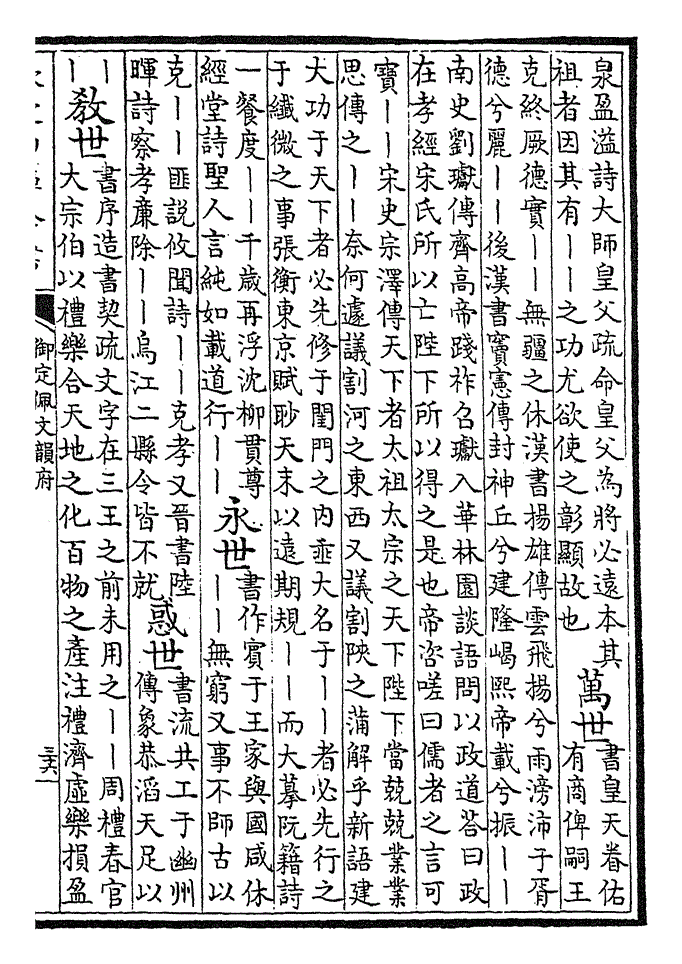 泉盈溢詩大師皇父疏命皇父為將必遠本其
祖者因其有｜｜之功尤欲使之彰顯故也
萬世
書皇天眷佑
有商俾嗣王
克終厥德實｜｜無疆之休漢書揚雄傳雲飛揚兮雨滂沛于胥
德兮麗｜｜後漢書竇憲傳封神丘兮建隆嵑熙帝載兮振｜｜
南史劉瓛傳齊高帝踐祚召瓛入華林園談語問以政道答曰政
在孝經宋氏所以亡陛下所以得之是也帝咨嗟曰儒者之言可
寶｜｜宋史宗澤傳天下者太祖太宗之天下陛下當兢兢業業
思傳之｜｜奈何遽議割河之東西又議割陜之蒲解乎新語建
大功于天下者必先修于閨門之内垂大名于｜｜者必先行之
于纖微之事張衡東京賦眇天末以遠期規｜｜而大摹阮籍詩
一餐度｜｜千歳再浮沈柳貫尊
經堂詩聖人言純如載道行｜｜
永世
書作賓于王家與國咸休
｜｜無窮又事不師古以
克｜｜匪説攸聞詩｜｜克孝又晉書陸
暉詩察孝廉除｜｜烏江二縣令皆不就
惑世
書流共工于幽州
傳象恭滔天足以
｜
｜
教世
書序造書契疏文字在三王之前未用之｜｜周禮春官
大宗伯以禮樂合天地之化百物之產注禮濟虛樂損盈
御定佩文韻府
三六